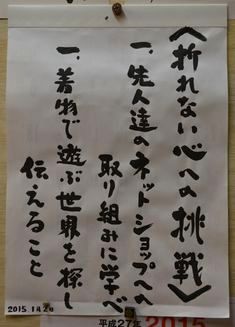 〈折れない心への挑戦〉
一、先人達のネットショップへの
取り組みに学べ
一、着物で遊ぶ世界を探し
伝えること
2015.1月2日
平成27年 2015